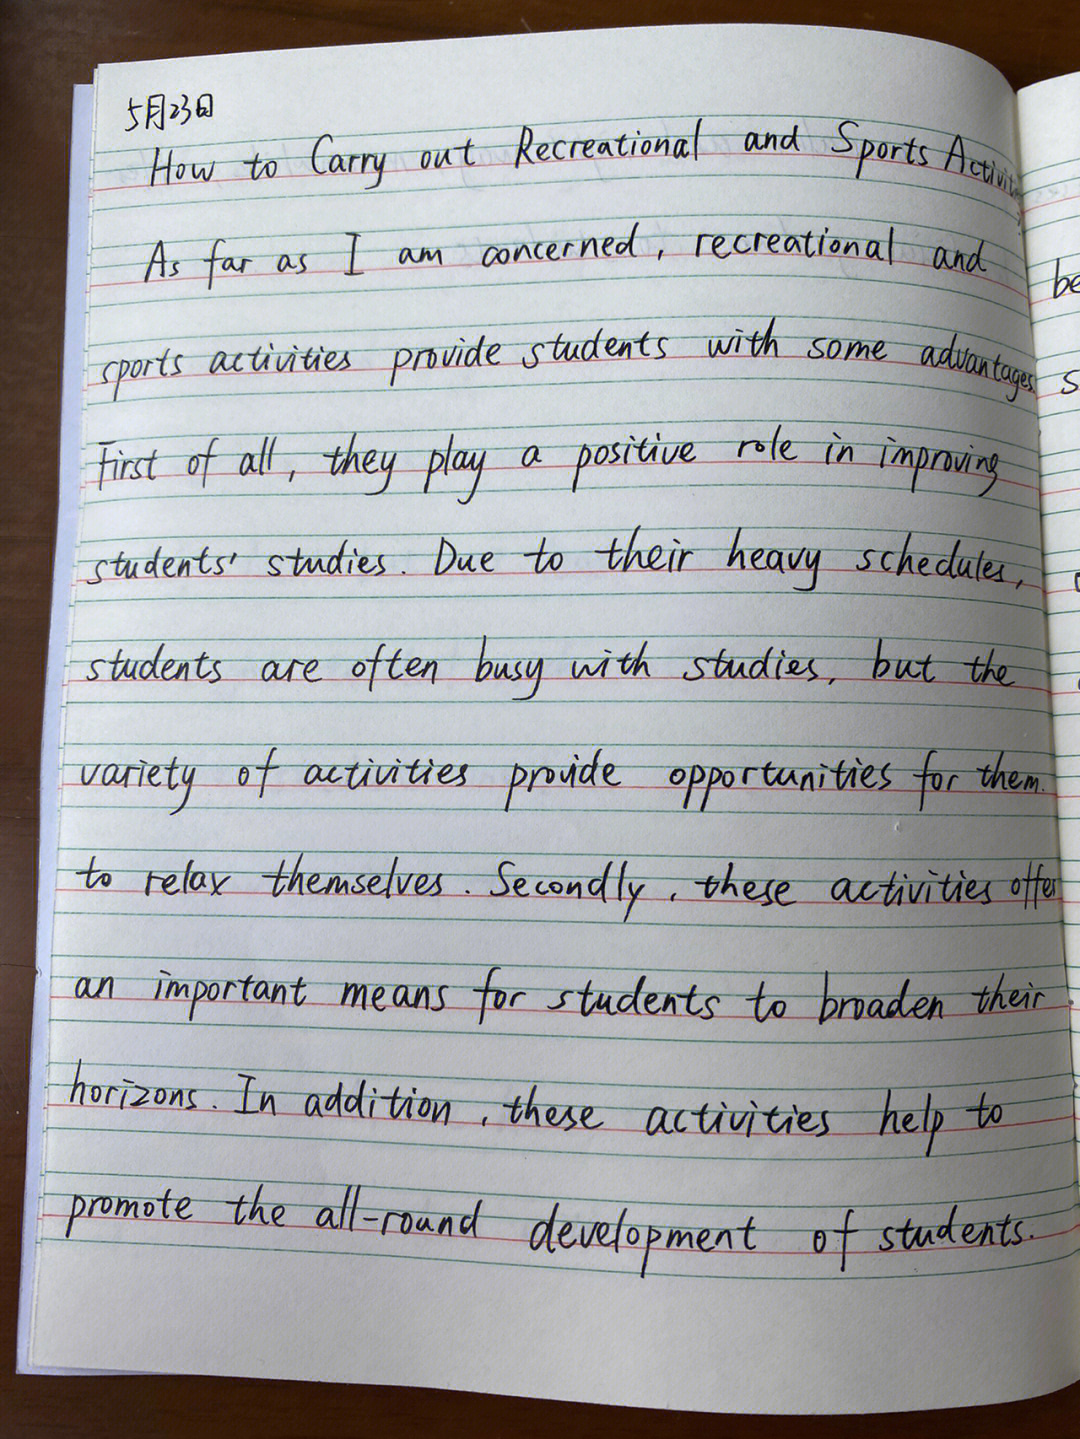 5月23日
How to Carry out Recreational and Sports
As far as I am concerned, recreational and
sports activities provide students with some advantages.
First of all, they play a positive role in improving
students' studies. Due to their heavy schedules,
students are often busy with studies, but the
variety of activities provide opportunities for them
to relax themselves. Secondly, these activities offer
an important means for students to broaden their
horizons. In addition, these activities help to
promote the all-round development of students.
be
s